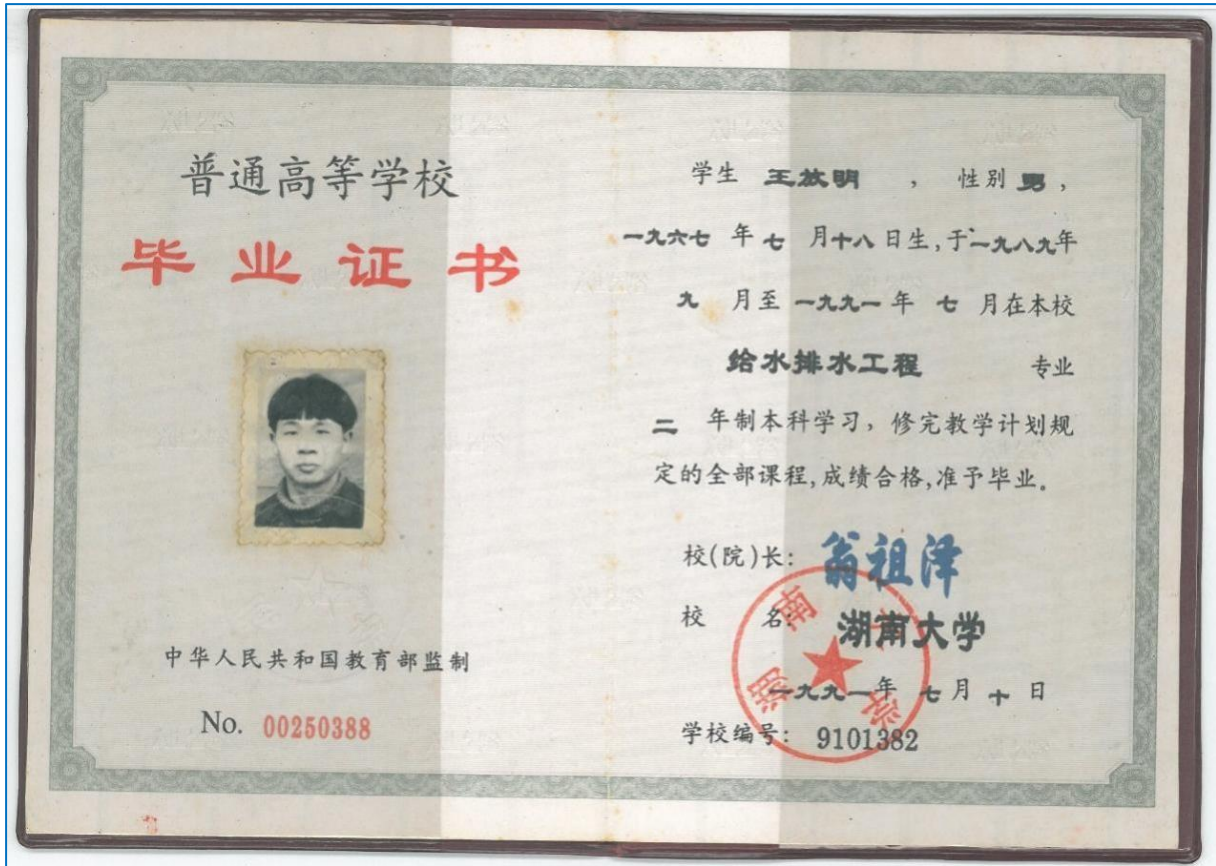 普通高等学校
毕业证书
中华人民共和国教育部监制
No. 00250388
学生 王放明 ，性别 男，
一九六七 年 七 月十八日生,于一九八九年
九 月至 一九九一 年 七 月在本校
给水排水工程 专业
二 年制本科学习，修完教学计划规
定的全部课程,成绩合格,准予毕业。
校(院)长: 翁祖泽
校 名: 湖南大学
一九九一年 七 月 十 日
学校编号: 9101382
湖南大学